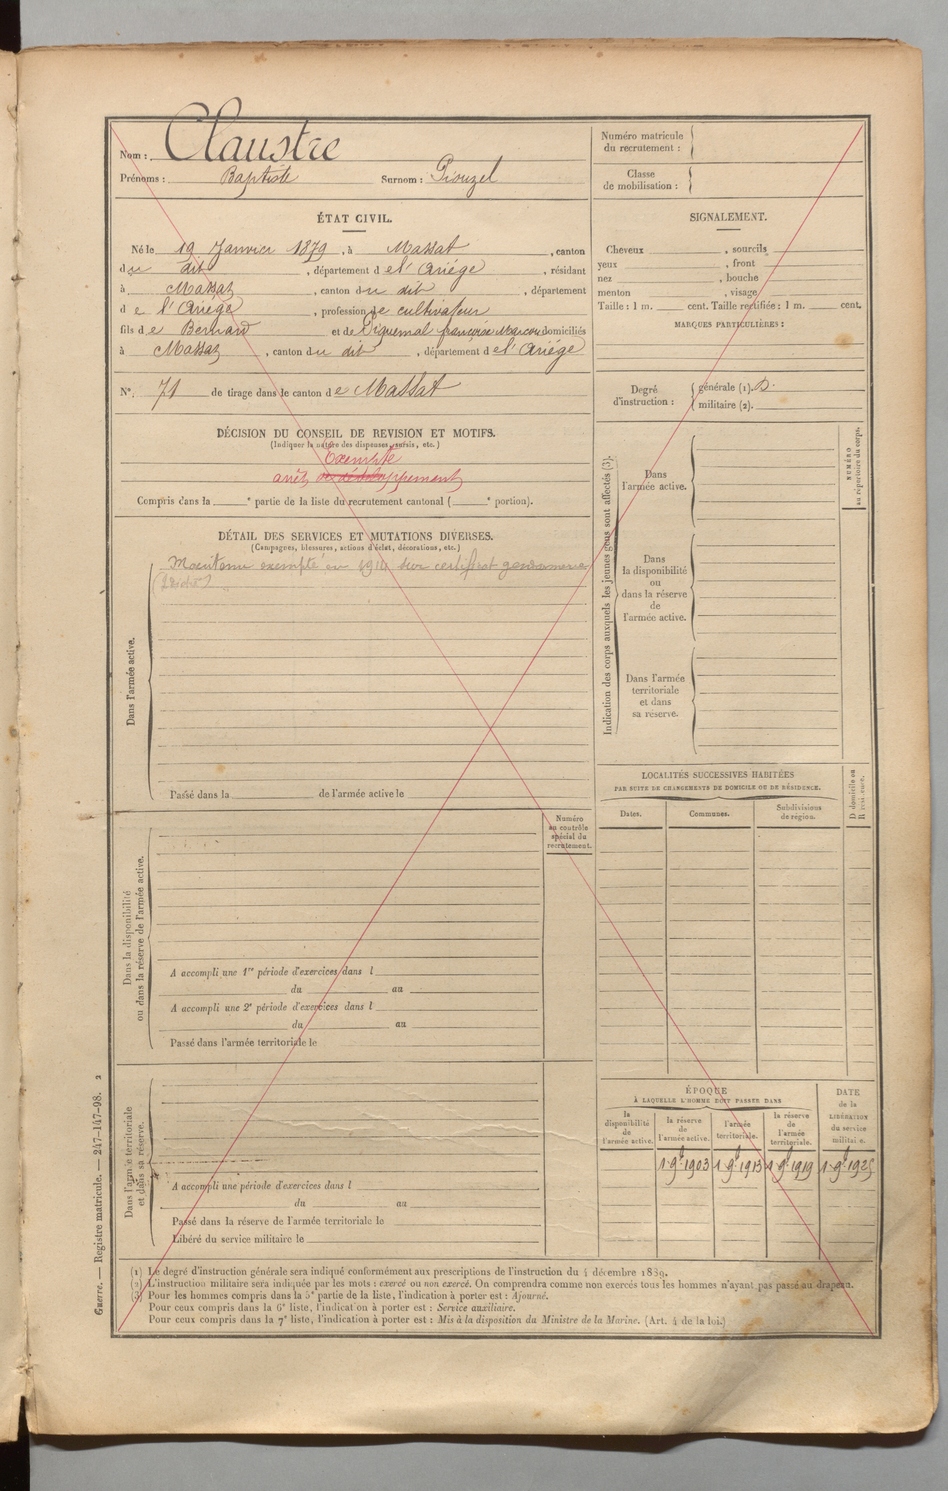 Nom : Claustre
Prénoms : Baptiste Surnom : Piouzel
Numéro matricule
du recrutement :
Classe
de mobilisation :
ÉTAT CIVIL.
Né le 19 Janvier 1879, à Massat, canton
du dit, département de l'Ariége, résidant
à Massat, canton du dit, département
de l'Ariége, profession de cultivateur
fils de Bernard et de françoise Marcou domiciliés
à Massat, canton du dit, département de l'Ariége
N° 71 de tirage dans le canton de Massat
SIGNALEMENT.
Cheveux , sourcils
yeux , front
nez , bouche
menton , visage
Taille : 1 m. cent. Taille rectifiée : 1 m. cent.
MARQUES PARTICULIÈRES :
Degré
d'instruction :
générale (1).
militaire (2).
DÉCISION DU CONSEIL DE REVISION ET MOTIFS.
(Indiquer la nature des dispenses, sursis, etc.)
Exempté
arrêt
Compris dans la e partie de la liste du recrutement cantonal ( e portion).
DÉTAIL DES SERVICES ET MUTATIONS DIVERSES.
(Campagnes, blessures, actions d'éclat, décorations, etc.)
Maintenu exempté en 1914 sur certificat gendarmerie
Dans l'armée active.
Passé dans la de l'armée active le
Indication des corps auxquels les jeunes gens sont affectés (3).
Dans
l'armée active.
Dans
la disponibilité
ou
dans la réserve
de
l'armée active.
Dans l'armée
territoriale
et dans
sa réserve.
NUMÉRO
au répertoire du corps.
LOCALITÉS SUCCESSIVES HABITÉES
PAR SUITE DE CHANGEMENTS DE DOMICILE OU DE RÉSIDENCE.
Dates. Communes. Subdivisions
de région.
D domicile ou
R résidence.
Numéro
au contrôle
spécial du
recrutement.
Dans la disponibilité
ou dans la réserve de l'armée active.
A accompli une 1re période d'exercices dans l
du au
A accompli une 2e période d'exercices dans l
du au
Passé dans l'armée territoriale le
ÉPOQUE
À LAQUELLE L'HOMME DOIT PASSER DANS
la
disponibilité
de
l'armée active.
la réserve
de
l'armée active.
l'armée
territoriale.
la réserve
de
l'armée
territoriale.
DATE
de la
LIBÉRATION
du service
militaire.
1 9b 1903 1 9b 1913 1 9b 1919 1 9b 1925
Dans l'armée territoriale
et dans sa réserve.
A accompli une période d'exercices dans l
du au
Passé dans la réserve de l'armée territoriale le
Libéré du service militaire le
Guerre. — Registre matricule. — 247-147-98. 2
(1) Le degré d'instruction générale sera indiqué conformément aux prescriptions de l'instruction du 4 décembre 1889.
(2) L'instruction militaire sera indiquée par les mots : exercé ou non exercé. On comprendra comme non exercés tous les hommes n'ayant pas passé au drapeau.
(3) Pour les hommes compris dans la 5e partie de la liste, l'indication à porter est : Ajourné.
Pour ceux compris dans la 6e liste, l'indication à porter est : Service auxiliaire.
Pour ceux compris dans la 7e liste, l'indication à porter est : Mis à la disposition du Ministre de la Marine. (Art. 4 de la loi.)